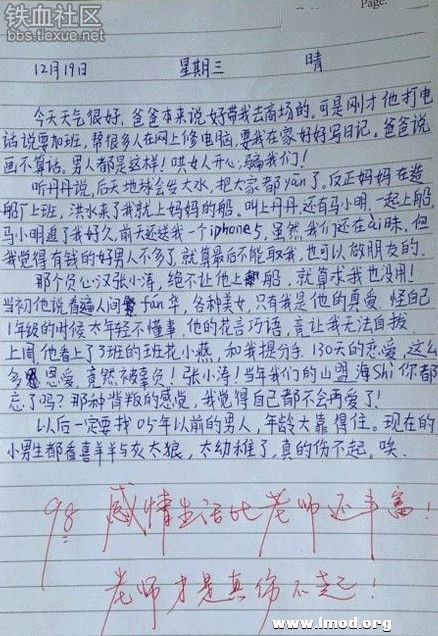 铁血社区
bbs.tiexue.net
Page.
12月19日 星期三 晴
今天天气很好，爸爸本来说好带我去商场的。可是刚才他打电
话说要加班，帮很多人在网上修电脑，要我在家好好写日记。爸爸说
画不算话。男人都是这样！哄女人开心，骗我们！
听丹丹说，后天地球会发大水，把大家都yān了。反正妈妈在造
船厂上班，洪水来了我就上妈妈的船。叫上丹丹，还有马小明，一起上船，
马小明追了我好久，前天还送我一个iphone5，虽然我们还在ài昧，但
我觉得有钱的好男人不多了，就算最后不能取我，也可以做朋友的。
那个负心汉张小涛，绝不让他上船，就算求我也没用！
当初他说看遍人间fán华，各种美女，只有我是他的真爱，怪自己
1年级的时候太年轻不懂事，他的花言巧语，竟让我无法自拔
上周他看上了3班的班花小燕，和我提分手，130天的恋爱，这么
多恩爱，竟然被辜负！张小涛！当年我们的山盟海Shì你都
忘了吗？那种背叛的感觉，我觉得自己都不会再爱了！
以后一定要找05年以前的男人，年龄大靠得住。现在的
小男生都看喜羊羊与灰太狼，太幼稚了，真的伤不起，唉。
98 感情生活比老师还丰富！
老师才是真伤不起！
www.lmod.org